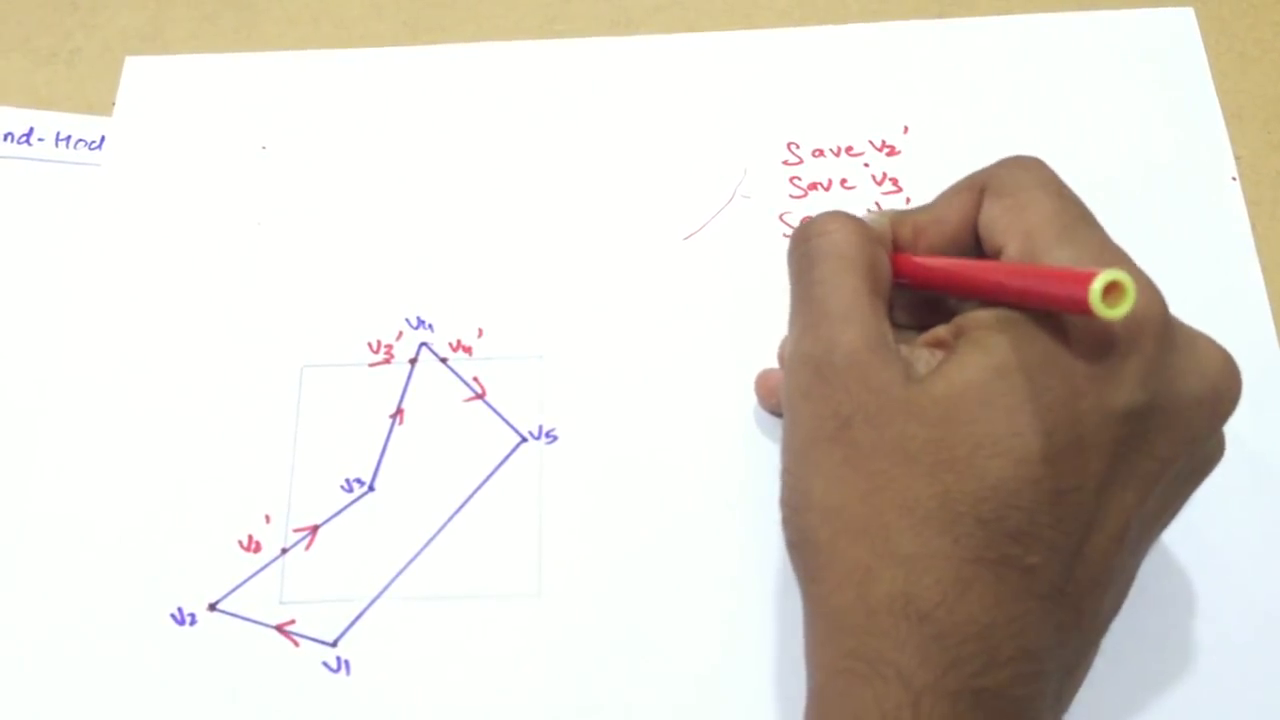 nd-Hod
Save v2'
Save v3
v3'
v4
v4'
v5
v3
v2'
v2
v1